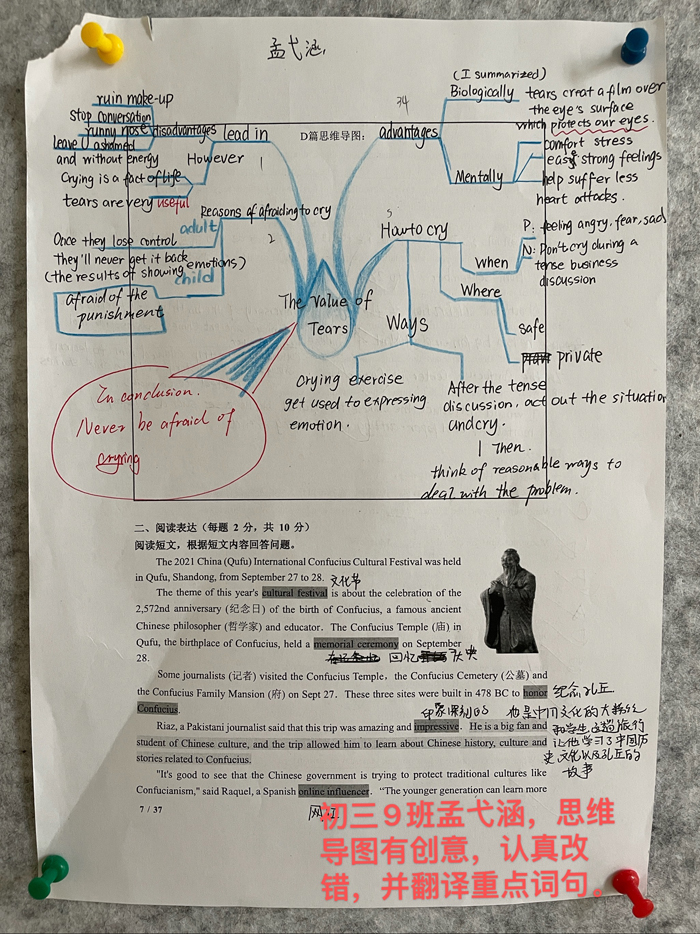 孟弋涵
34
D篇思维导图:
lead in
1
disadvantages
ruin make-up
stop conversation
runny nose
leave U ashamed
and without energy
However
Crying is a fact of life
tears are very useful
Reasons of afraiding to cry
2
adult
Once they lose control
They'll never get it back
(the results of showing emotions)
child
afraid of the
punishment
advantages
(I summarized)
Biologically
tears creat a film over
the eye's surface
which protects our eyes.
Mentally
comfort stress
ease strong feelings
help suffer less
heart attacks.
3
How to cry
when
P: feeling angry, fear, sad
N: Don't cry during a
tense business
discussion
Where
safe
private
Ways
Crying exercise
get used to expressing
emotion.
After the tense
discussion, act out the situation
and cry.
Then.
think of reasonable ways to
deal with the problem.
The Value of
Tears
In conclusion.
Never be afraid of
crying
二、阅读表达(每题 2 分,共 10 分)
阅读短文,根据短文内容回答问题。
The 2021 China (Qufu) International Confucius Cultural Festival was held
in Qufu, Shandong, from September 27 to 28.
文化节
The theme of this year's cultural festival is about the celebration of the
2,572nd anniversary (纪念日) of the birth of Confucius, a famous ancient
Chinese philosopher (哲学家) and educator. The Confucius Temple (庙) in
Qufu, the birthplace of Confucius, held a memorial ceremony on September
28.
回忆
Some journalists (记者) visited the Confucius Temple, the Confucius Cemetery (公墓) and
the Confucius Family Mansion (府) on Sept 27. These three sites were built in 478 BC to honor
Confucius.
纪念孔丘
印象深刻的
Riaz, a Pakistani journalist said that this trip was amazing and impressive. He is a big fan and
student of Chinese culture, and the trip allowed him to learn about Chinese history, culture and
stories related to Confucius.
他是中国文化的大粉丝
和学生,这趟旅行
让他学习了中国历
史文化以及孔丘的
故事
"It's good to see that the Chinese government is trying to protect traditional cultures like
Confucianism," said Raquel, a Spanish online influencer. "The younger generation can learn more
网红
7 / 37
初三9班孟弋涵,思维
导图有创意,认真改
错,并翻译重点词句。